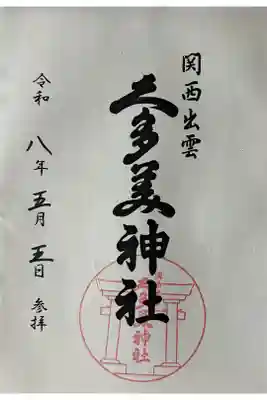 関西出雲
久多美神社
令和八年五月五日 参拝
久多美神社